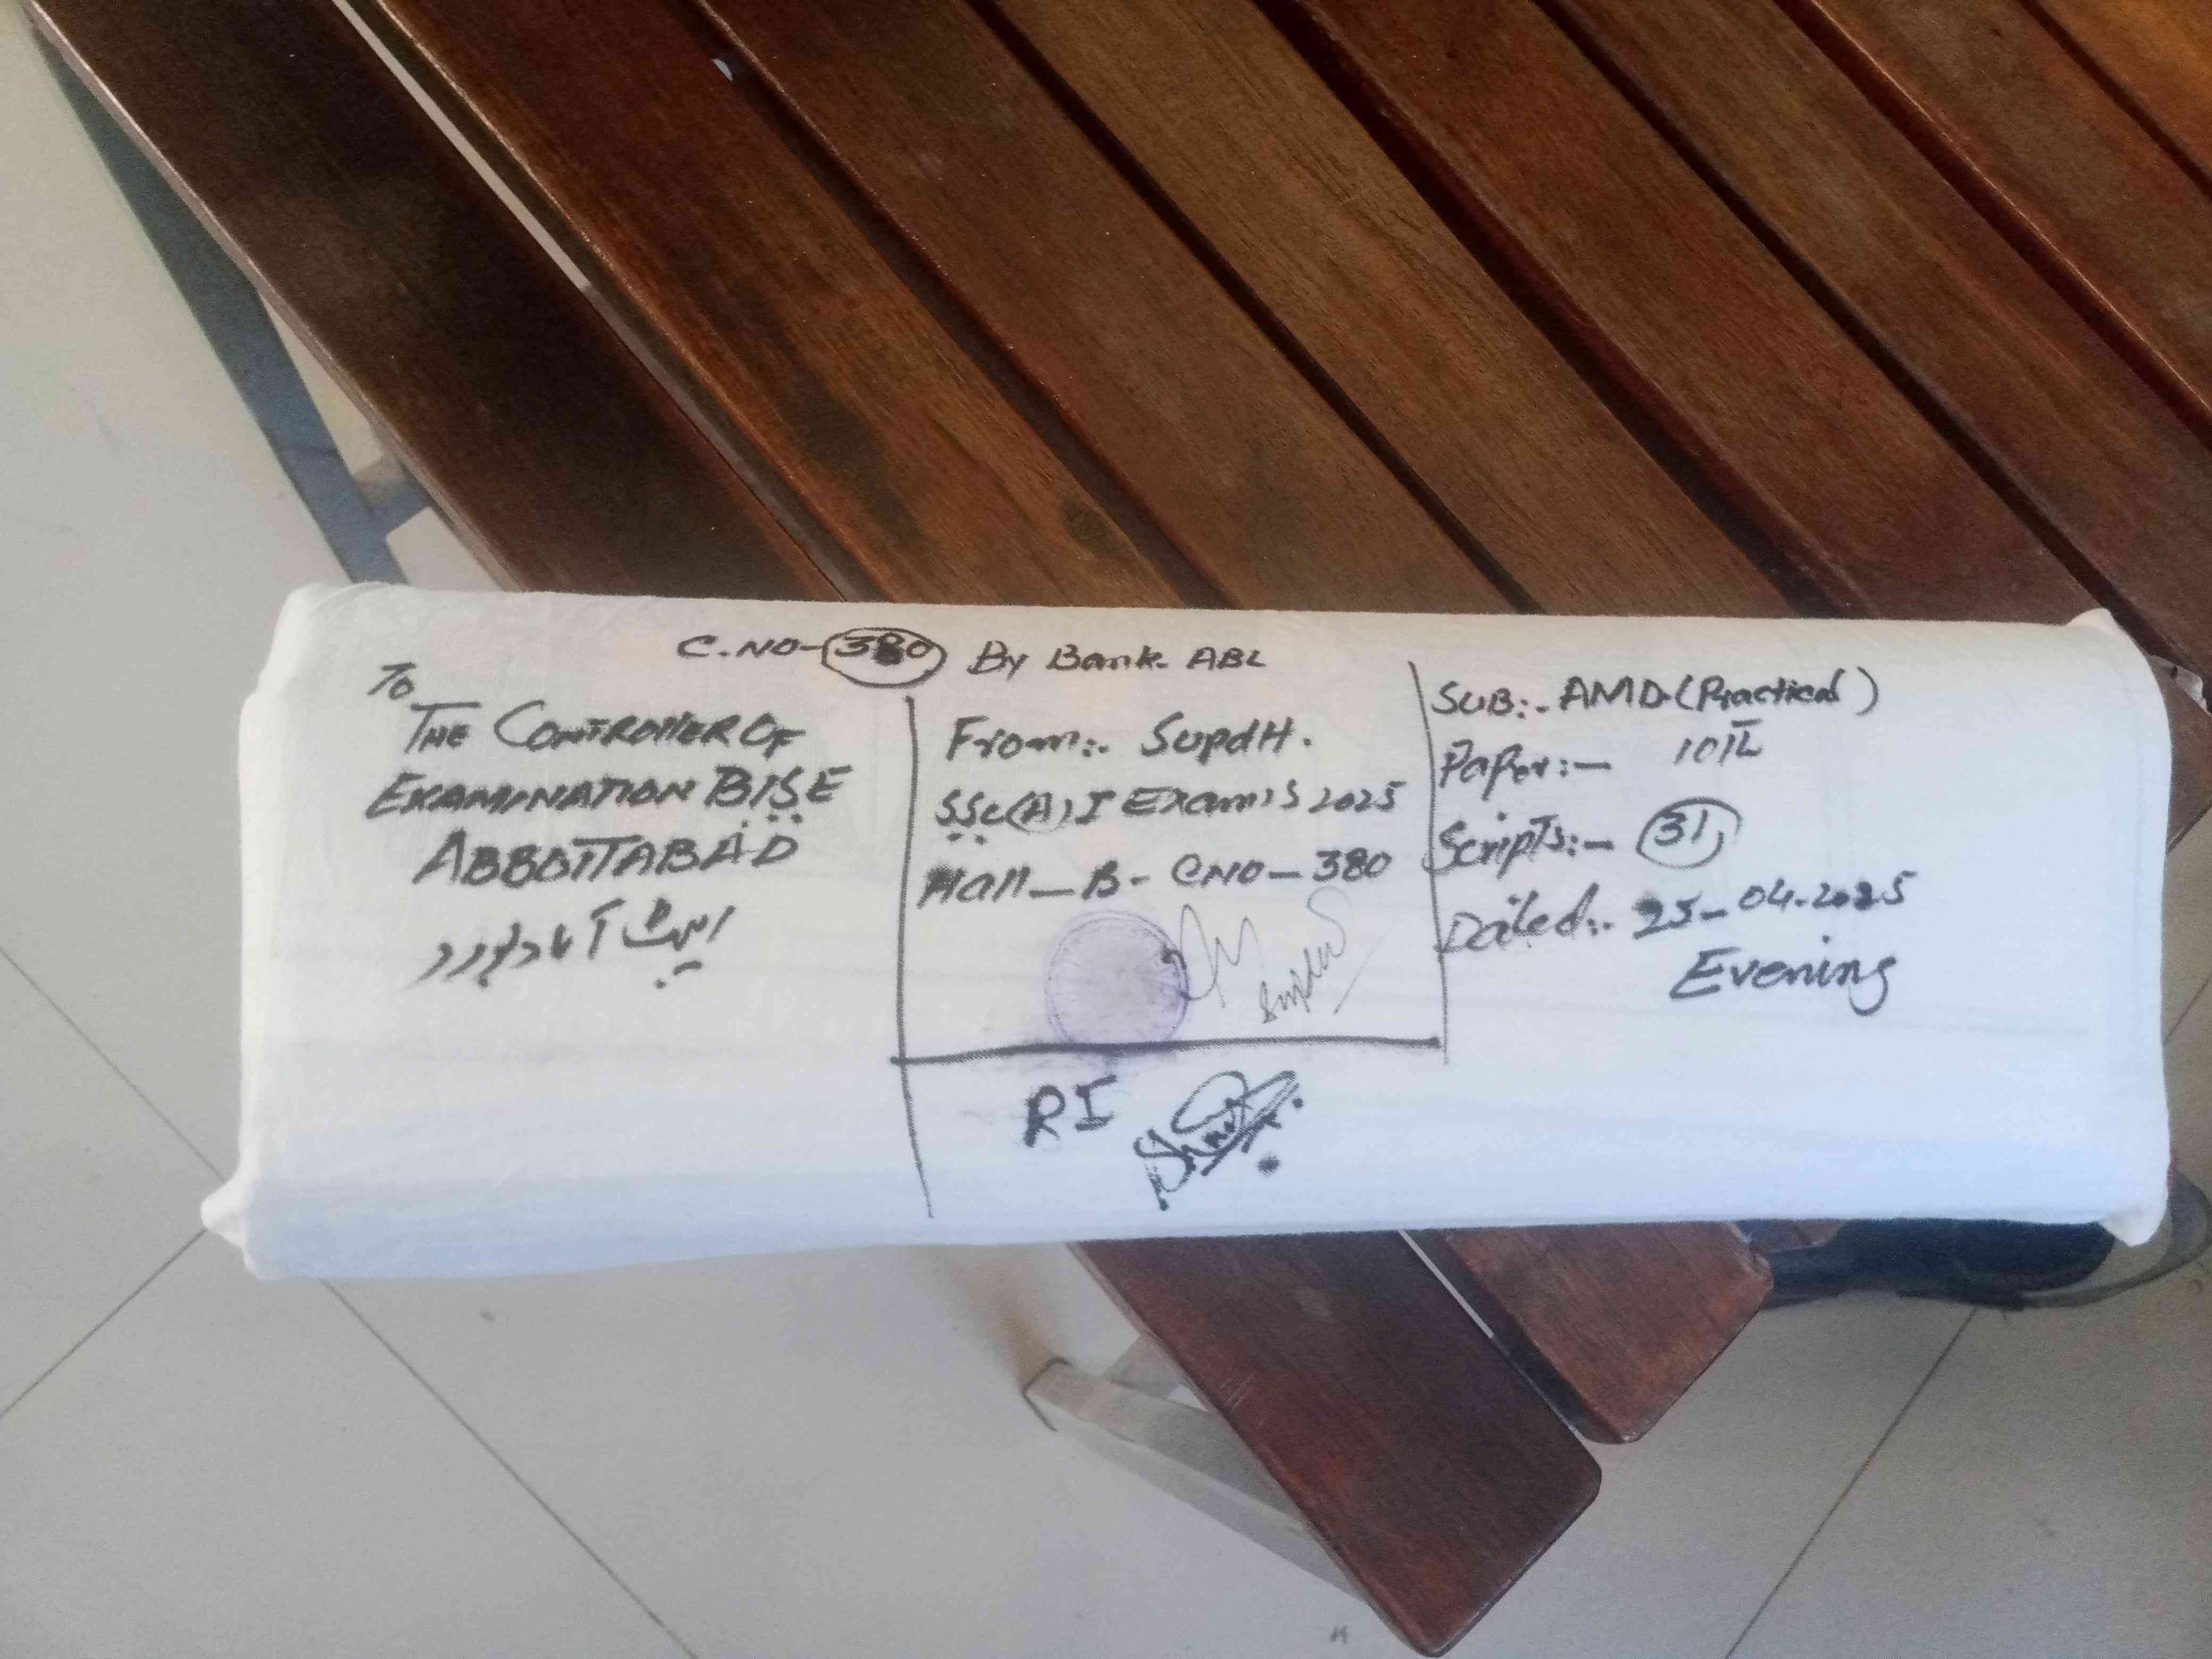 C.NO-380 By Bank. ABL
To
THE CONTROLLER OF
EXAMINATION BISE
ABBOTTABAD
ایبٹ آباد بورڈ
From:. Supdtt.
SSC(A)I Exams 2025
Hall_B- CNO-380
Supdtt
RI
SUB:- AMD(Practical)
Paper:- 10th
Scripts:- 31
Dated:. 25-04-2025
Evening